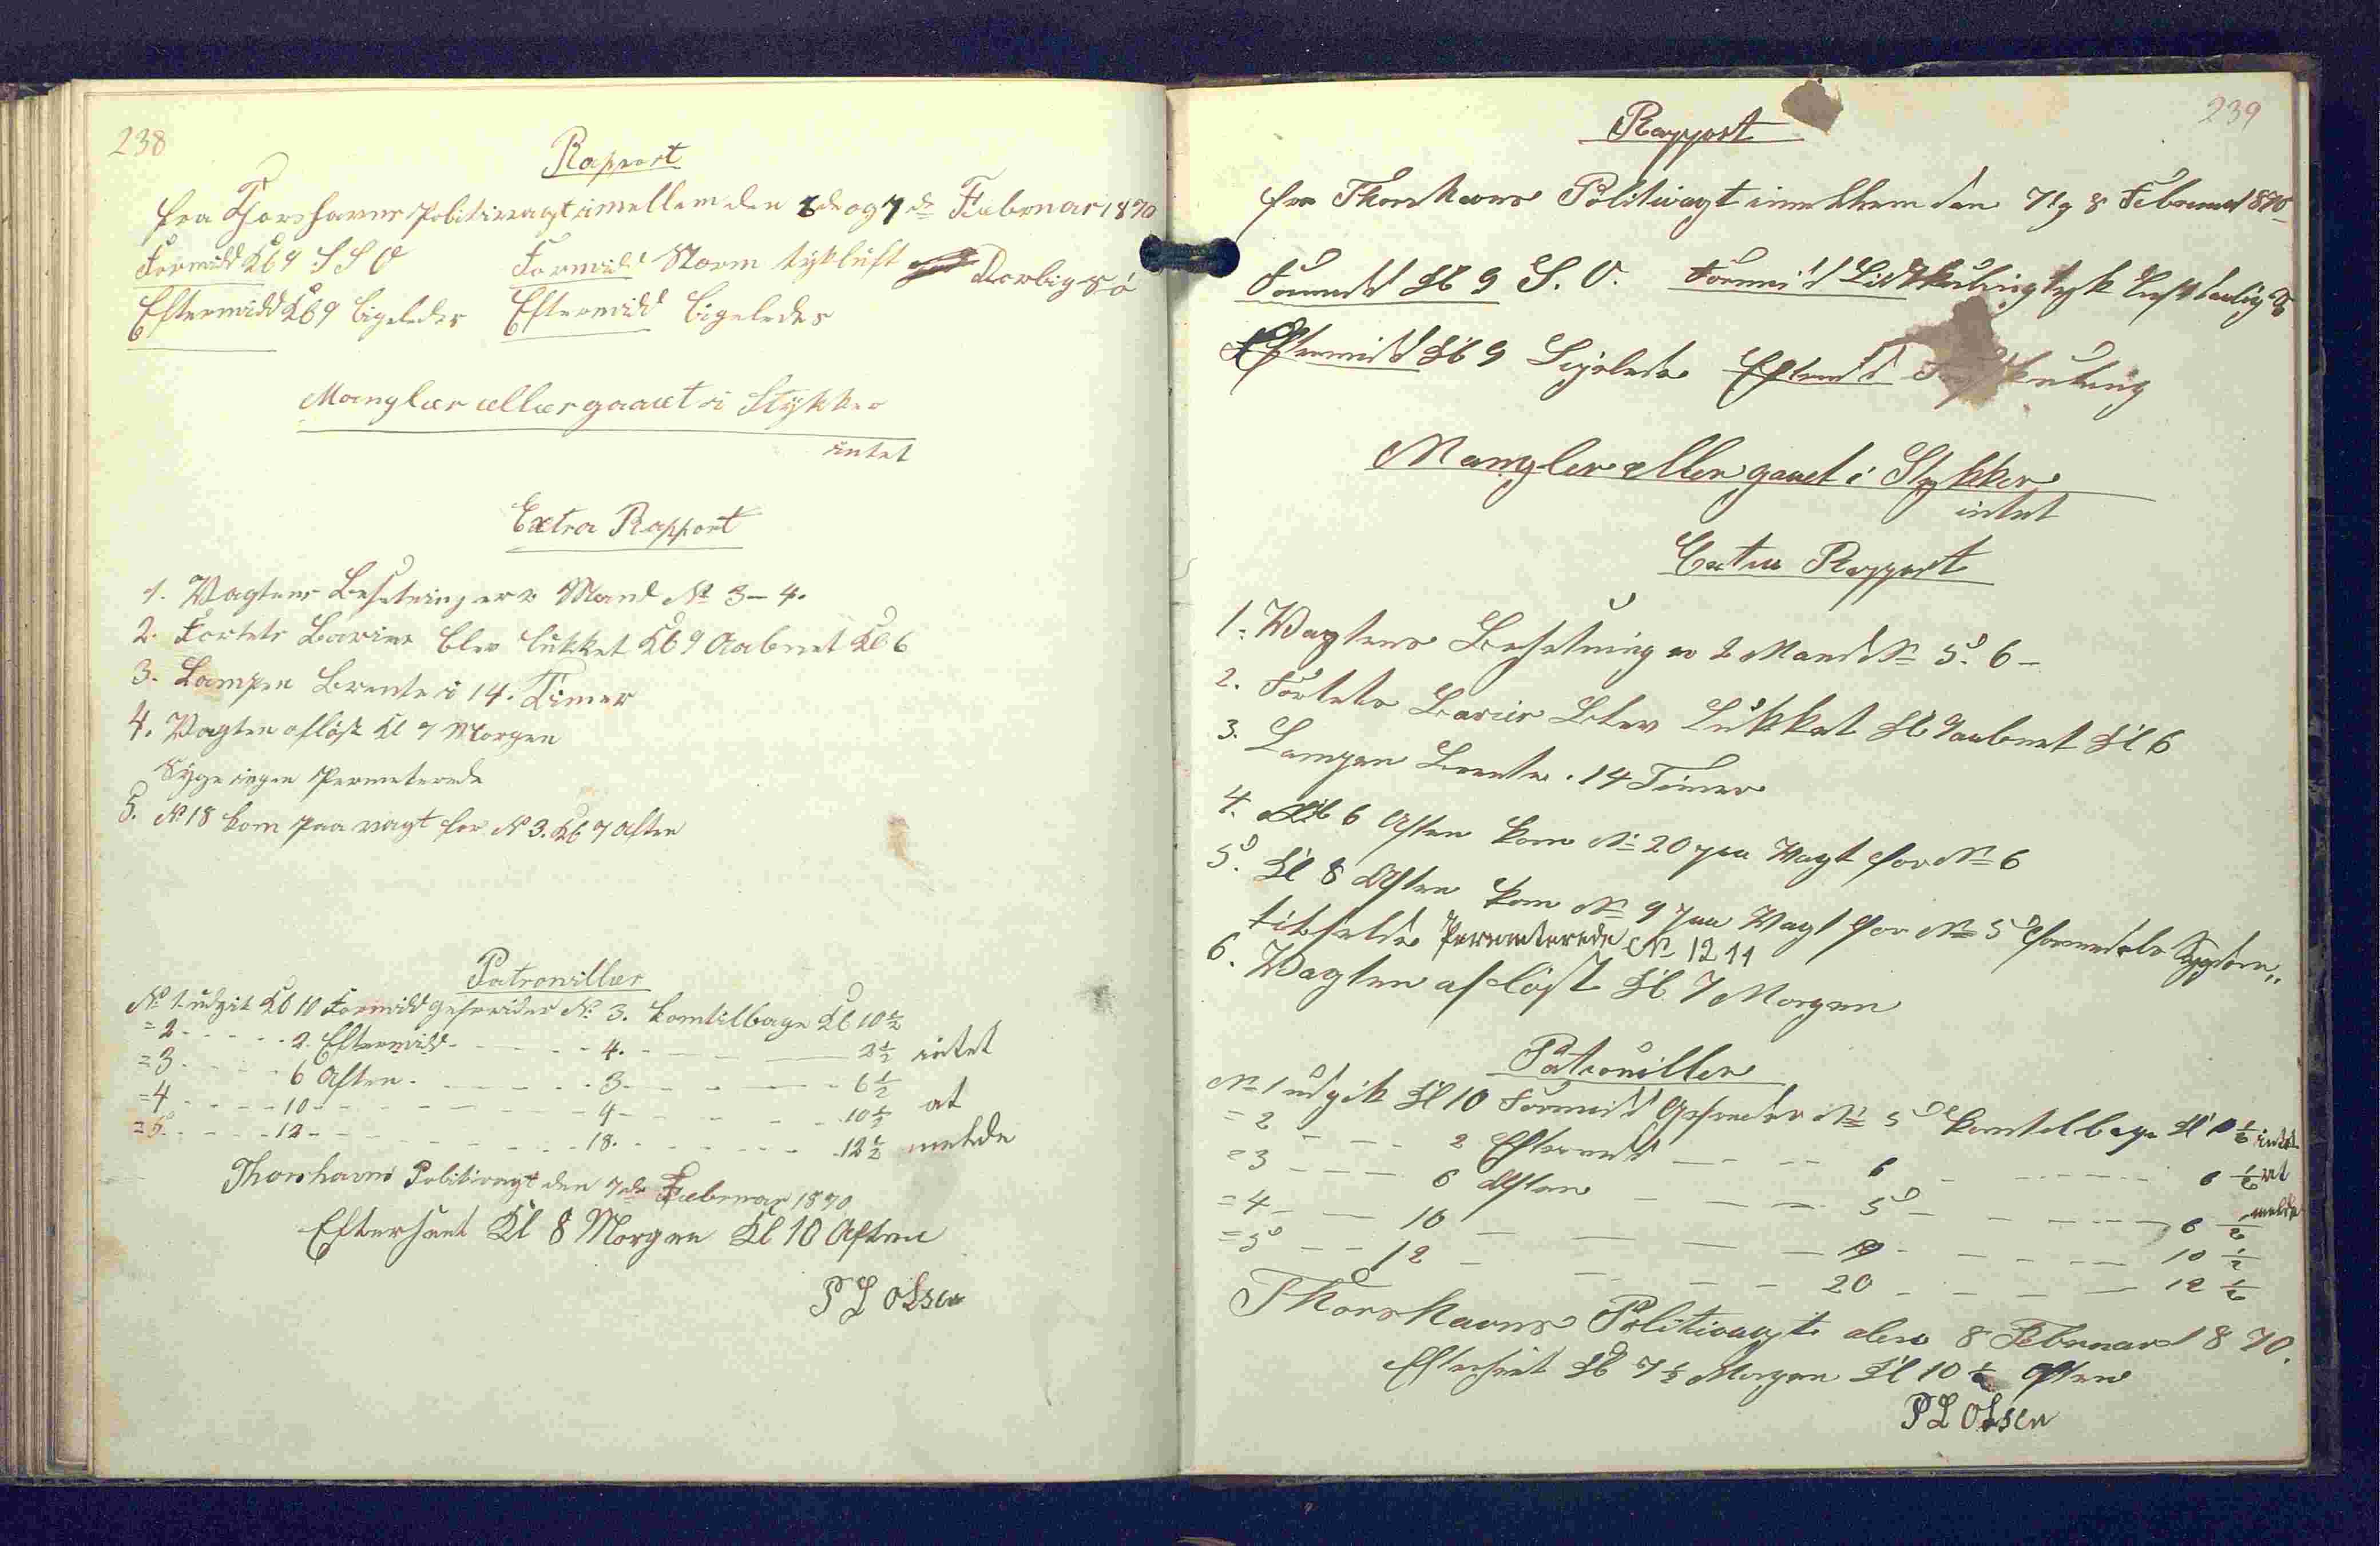 238
Rapport
fra Thorshavns Politivagt imellem den 6de og 7de Februar 1870
Formidd Kl 9 S S O Formidd Storm tykluft Dorlig Sö
Eftermidd Kl 9 ligeledes Eftermidd ligeledes
Mangler eller gaaet i Stykker
intet
Extra Rapport
1. Vagtens Besetning er 2 Mand No 3-4.
2. Fortets Barier blev lukket Kl 9 Aabnet Kl 6
3. Lampen Brente i 14. Timer
4. Vagten aflöst Kl 7 Morgen
Syge ingen Permeterede
5. No 18 kom paa vagt for No 3. Kl 7 Aften
Patrouiller
No 1. udgik Kl 10 Formidd Gefreider No 3. kom tilbage Kl 10½
=2 - - - - 2. Eftermidd - - - - 4. - - - - 2½ intet
=3 - - - - 6 Aften - - - - 3 - - - - 6½
=4 - - - - 10 - - - - 4 - - - - 10½ at
=5 - - - - 12 - - - - 18. - - - - 12½ melde
Thorshavns Politivagt den 7de Februar 1870
Efterseet Kl 8 Morgen Kl 10 Aften
P L Olsen
239
Rapport
fra Thorshavns Politivagt imellem den 7 og 8 Februar 1870
Formidd Kl 9 S. O. Formidd Lidt kuling tyk luft daarlig
Eftermidd Kl 9 Ligeledes Eftermidd kuling
Mangler eller gaaet i Stykker
intet
Extra Rapport
1. Vagtens Besetning er 2 Mand No 5. 6 -
2. Fortets Barier Blev Lukket Kl 9 aabnet Kl 6
3. Lampen Brente 14 Timer
4. Kl 6 Aften kom No 20 paa Vagt for No 6
5. Kl 8 Aften kom No 9 paa Vagt for No 5 formedels Sygdom
tilfelde Permeterede No 12 11
6. Vagten aflöst Kl. 7 Morgen
Patrouiller
No 1 udgik Kl 10 Formidd Gefreider No 5 kom tilbage Kl 10½ intet
=2 - - - 2 Eftermidd - - - 6 - - - ½ at
=3 - - - 6 Aften - - - 5 - - - 6½ melde
=4 - - - 10 - - - 9 - - - 10½
=5 - - - 12 - - - 20 - - - 12½
Thorshavns Politivagt den 8 Februar 1870.
Efterseet Kl 7½ Morgen Kl 10½ Aften
P L Olsen